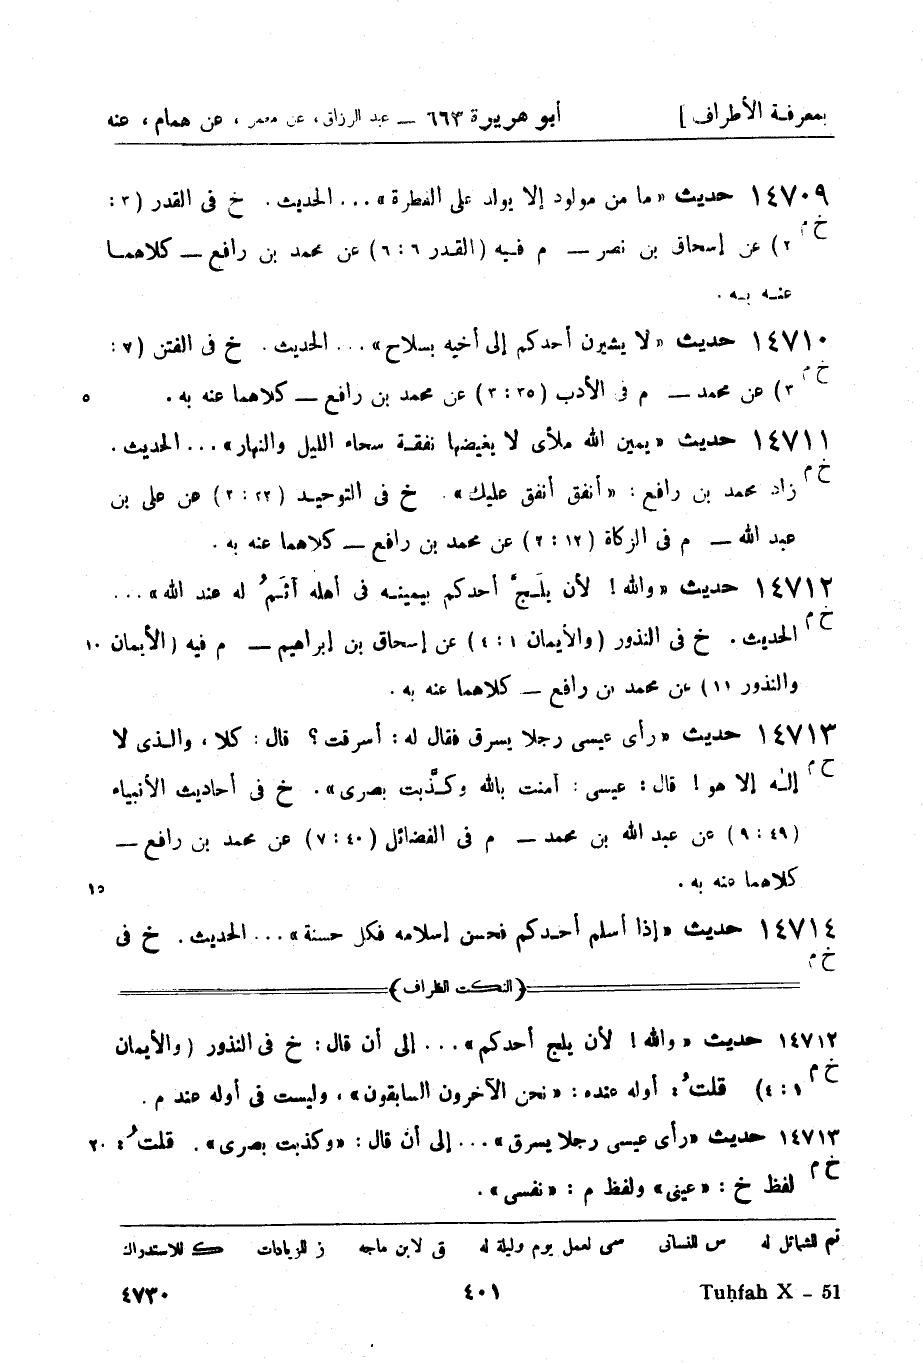 بمعرفة الأطراف ] أبو هريرة ٦٦٣ ــ عبد الرزاق، عن معمر، عن همام، عنه
١٤٧٠٩ حديث «ما من مولود إلا يولد على الفطرة» ... الحديث. خ فى القدر (٣ :
خ م
٢) عن إسحاق بن نصر ــ م فيه (القدر ٦ : ٦) عن محمد بن رافع ــ كلاهما
عنه به.
١٤٧١٠ حديث «لا يشيرن أحدكم إلى أخيه بسلاح» ... الحديث. خ فى الفتن (٧ :
خ م
٣) عن محمد ــ م فى الأدب (٣٥ : ٣) عن محمد بن رافع ــ كلاهما عنه به. ٥
١٤٧١١ حديث «يمين الله ملأى لا يغيضها نفقة سحاء الليل والنهار» ... الحديث.
خ م
زاد محمد بن رافع : «أنفق أنفق عليك». خ فى التوحيد (٢٢ : ٢) عن على بن
عبد الله ــ م فى الزكاة (١٢ : ٢) عن محمد بن رافع ــ كلاهما عنه به.
١٤٧١٢ حديث «والله! لأن يلَجَّ أحدكم بيمينه فى أهله آثَمُ له عند الله» ...
خ م
الحديث. خ فى النذور (والأيمان ١ : ٤) عن إسحاق بن إبراهيم ــ م فيه (الأيمان ١٠
والنذور ١١) عن محمد بن رافع ــ كلاهما عنه به.
١٤٧١٣ حديث «رأى عيسى رجلا يسرق فقال له : أسرقت؟ قال : كلا، والذى لا
خ م
إله إلا هو! قال : عيسى : آمنت بالله وكذَّبت بصرى». خ فى أحاديث الأنبياء
(٤٩ : ٩) عن عبد الله بن محمد ــ م فى الفضائل (٤٠ : ٧) عن محمد بن رافع ــ
كلاهما عنه به. ١٥
١٤٧١٤ حديث «إذا أسلم أحدكم فحسن إسلامه فكل حسنة» ... الحديث. خ فى
خ م
(النكت الظراف)
١٤٧١٢ حديث «والله! لأن يلج أحدكم» ... إلى أن قال : خ فى النذور (والأيمان
خ م
١ : ٤) قلتُ : أوله عنده : «نحن الآخرون السابقون»، وليست فى أوله عند م.
١٤٧١٣ حديث «رأى عيسى رجلا يسرق» ... إلى أن قال : «وكذبت بصرى». قلتُ : ٢٠
خ م
لفظ خ : «عينى» ولفظ م : «نفسى».
تم للشمائل له س للنسائى سى لعمل يوم وليلة له ق لابن ماجه ز للزيادات ك للاستدراك
Tuḥfah X – 51 ٤٠١ ٤٧٣٠